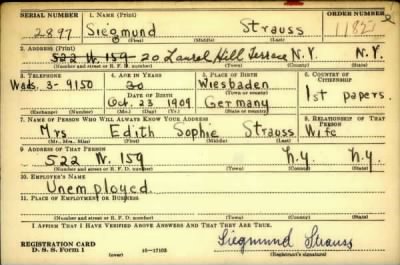 SERIAL NUMBER 1. NAME (Print) ORDER NUMBER
2897 Siegmund Strauss 11827
(First) (Middle) (Last)
2. ADDRESS (Print)
522 W. 159 20 Laurel Hill Terrace N.Y. N.Y.
(Number and street or R. F. D. number) (Town) (County) (State)
3. TELEPHONE 4. AGE IN YEARS 5. PLACE OF BIRTH 6. COUNTRY OF CITIZENSHIP
Wads. 3-9150 Wiesbaden
DATE OF BIRTH (Town or county)
Oct. 23 1909 Germany 1st papers
(Exchange) (Number) (Mo.) (Day) (Yr.) (State or country)
7. NAME OF PERSON WHO WILL ALWAYS KNOW YOUR ADDRESS 8. RELATIONSHIP OF THAT PERSON
Mrs Edith Sophie Strauss Wife
(Mr., Mrs., Miss) (First) (Middle) (Last)
9. ADDRESS OF THAT PERSON
522 W. 159 N.Y. N.Y.
(Number and street or R. F. D. number) (Town) (County) (State)
10. EMPLOYER'S NAME
Unemployed.
11. PLACE OF EMPLOYMENT OR BUSINESS
(Number and street or R. F. D. number) (Town) (County) (State)
I AFFIRM THAT I HAVE VERIFIED ABOVE ANSWERS AND THAT THEY ARE TRUE.
REGISTRATION CARD
D. S. S. Form 1 (over) 16-17105 Siegmund Strauss
(Registrant's signature)